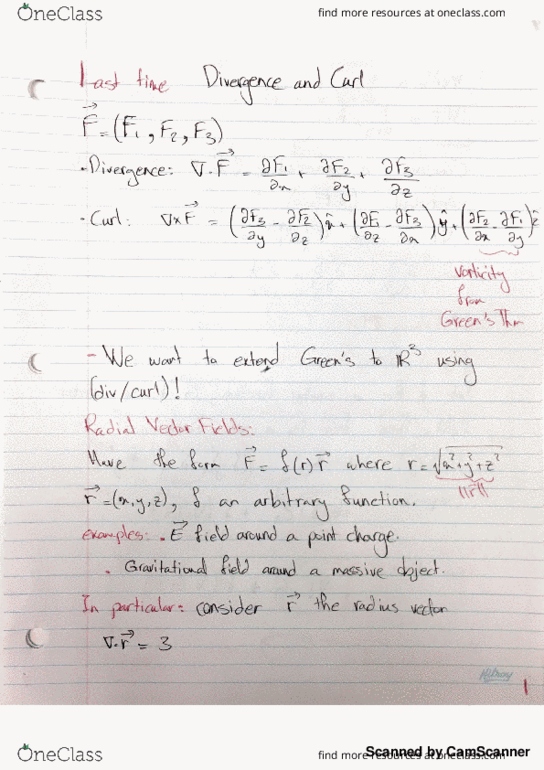 OneClass find more resources at oneclass.com
Last time Divergence and Curl
F⃗ = (F₁, F₂, F₃)
• Divergence: ∇·F⃗ = ∂F₁/∂x + ∂F₂/∂y + ∂F₃/∂z
• Curl: ∇×F⃗ = (∂F₃/∂y - ∂F₂/∂z)x̂ + (∂F₁/∂z - ∂F₃/∂x)ŷ + (∂F₂/∂x - ∂F₁/∂y)ẑ
Vorticity
from
Green's Thm
- We want to extend Green's to ℝ³ using
(div/curl)!
Radial Vector Fields:
Have the form F⃗ = f(r)r⃗ where r = √(x²+y²+z²)
||r⃗||
r⃗ = (x,y,z), f an arbitrary function.
examples: • E⃗ field around a point charge.
• Gravitational field around a massive object.
In particular: consider r⃗ the radius vector
∇·r⃗ = 3
Hilroy
1
OneClass find more resources at oneclass.com
Scanned by CamScanner